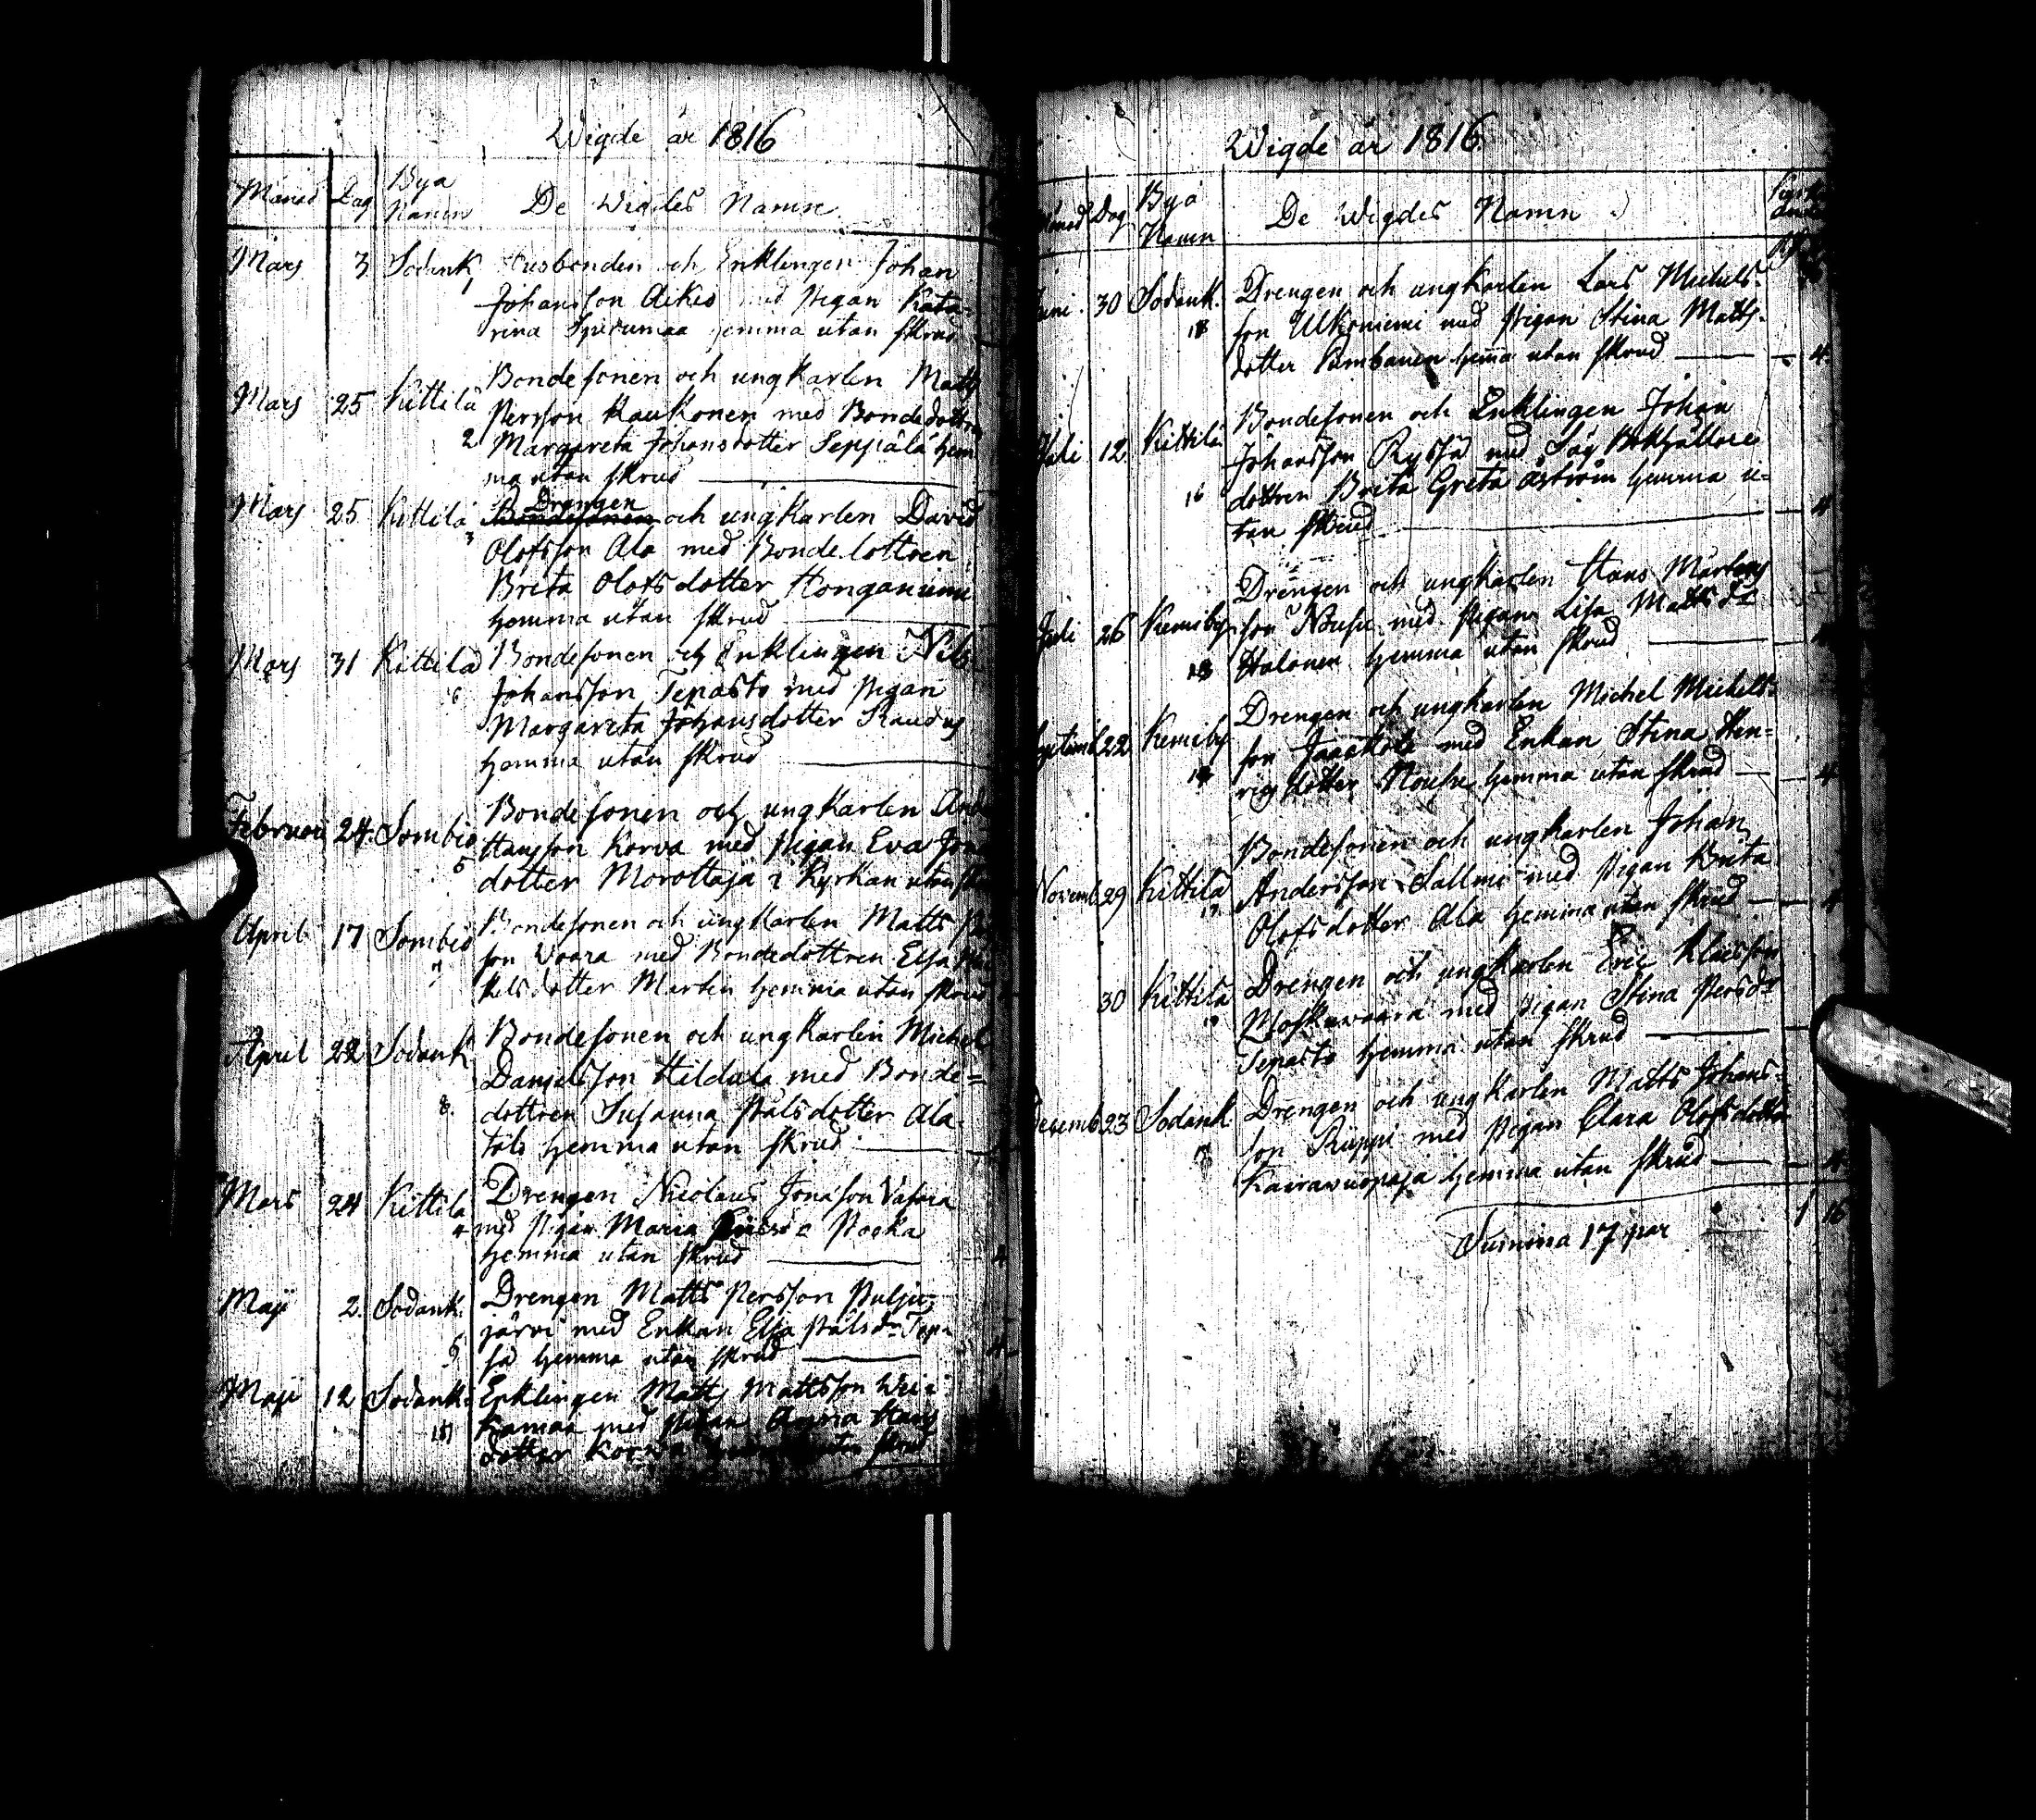 Wigde år 1816
Månad Dag Bya Namn De Wigdes Namn
Mars 3 Sodank. Husbonden och Enklingen Johan
1 Johansson Aikio med Pigan Kata-
rina hemma utan skrud
Mars 25 Kittilä Bondesonen och ungkarlen Matts
Persson Kaukonen med Bondedottren
2 Margareta Johansdotter Seppälä hem-
ma utan skrud
Mars 25 Kittilä Drengen och ungkarlen David
3 Olofsson Ala med Bondedottren
Brita Olofsdotter Honganiemi
hemma utan skrud
Mars 31 Kittilä Bondesonen och Enklingen Nils
6 Johansson Tepasto med Pigan
Margareta Johansdotter Raudus
hemma utan skrud
Februari 24. Sombio Bondesonen och ungkarlen And
5 Hansson Korva med Pigan Eva
dotter Morottaja i Kyrkan utan
April 17 Sombio Bondesonen och ungkarlen Matts
7 son Vaara med Bondedottren Elsa
kelsdotter Martin hemma utan skrud
April 22 Sodank Bondesonen och ungkarlen Michel
Danielsson Hildula med Bonde=
8. dottren Susanna Pålsdotter Ala-
talo hemma utan skrud
Mars 24 Kittilä Drengen Nicolaus Jonasson
4 med Pigan Maria
hemma utan skrud 4
Maji 2. Sodank. Drengen Matts Persson Pulju-
järvi med Enkan Elsa Pålsdr
hemma utan skrud 4
Maji 12 Sodank. Enklingen Matts Mattsson
med Pigan Anna Hans
dotter Korva hemma utan skrud
Wigde år 1816.
Dag Bya Namn De Wigdes Namn
Juni 30 Sodank. Drengen och ungkarlen Lars Michels-
son Ulkoniemi med Pigan Stina Matts-
dotter hemma utan skrud 4
Juli 12. Kittilä Bondesonen och Enklingen Johan
Johansson Ryssä med Såg
16 dottren Brita Greta Åström hemma u=
tan skrud 4
Juli 26 Kemiby Drengen och ungkarlen Hans Mårtens
son med Pigan Lisa Mattsdr
Halonen hemma utan skrud 4
22 Kemiby Drengen och ungkarlen Michel Michels-
son Jaakola med Enkan Stina Hen=
dotter hemma utan skrud 4
Novemb 29 Kittilä Bondesonen och ungkarlen Johan
Andersson Sallmi med Pigan Brita
Olofsdotter Ala hemma utan skrud 4
30 Kittilä Drengen och ungkarlen Eric
med Pigan Stina Persdr
Tepasto hemma utan skrud
Decemb 23 Sodank Drengen och ungkarlen Matts Johans-
son med Pigan Clara Olofsdotter
hemma utan skrud 4
Summa 17 par 1 16